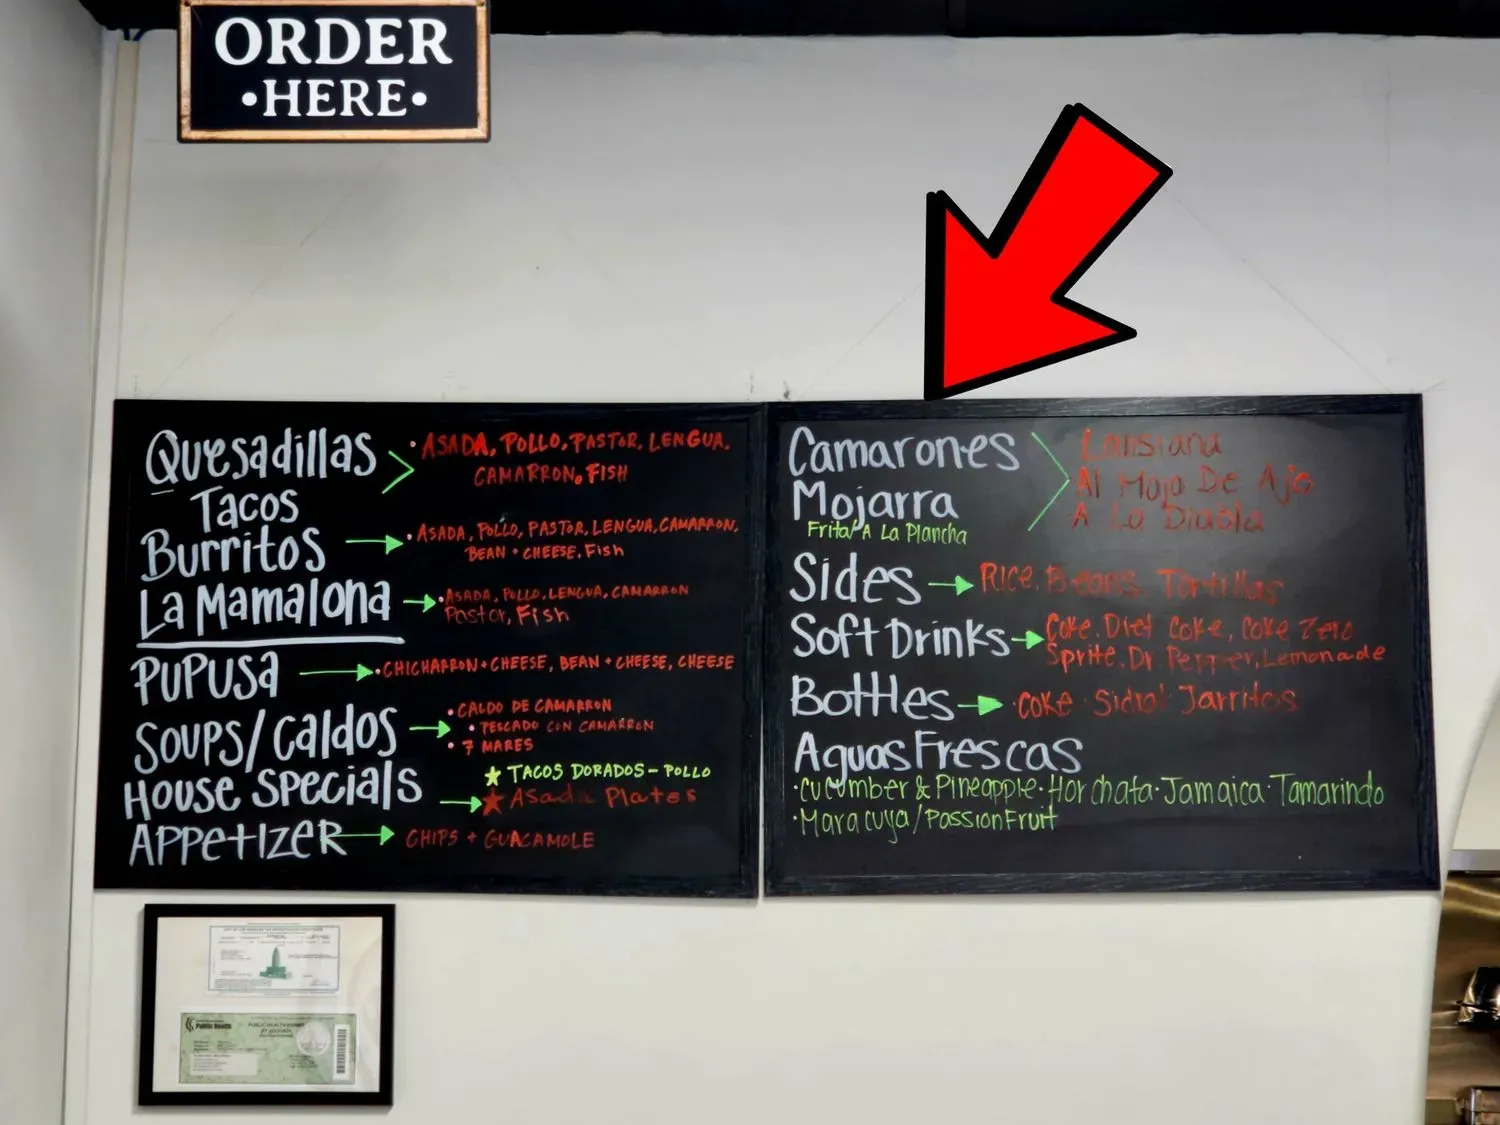 ORDER
•HERE•
Quesadillas
• ASADA, POLLO, PASTOR, LENGUA,
CAMARRON, FISH
Tacos
Burritos
• ASADA, POLLO, PASTOR, LENGUA, CAMARRON,
BEAN + CHEESE, Fish
La Mamalona
• ASADA, POLLO, LENGUA, CAMARRON
Pastor, Fish
PUPUSA
• CHICHARRON + CHEESE, BEAN + CHEESE, CHEESE
SOUPS/Caldos
• CALDO DE CAMARRON
• PESCADO CON CAMARRON
• 7 MARES
HOUSE SPecials
★ TACOS DORADOS - POLLO
★ Asada Plates
APPetIZER
CHIPS + GUACAMOLE
Camarones
Mojarra
Frita/A La Plancha
Lousiana
Al Mojo De Ajo
A La Diabla
Sides
Rice, Beans, Tortillas
Soft Drinks
Coke, Diet Coke, Coke Zero
Sprite, Dr Pepper, Lemonade
Bottles
• Coke • Sidral Jarritos
Aguas Frescas
• Cucumber & Pineapple • Horchata • Jamaica • Tamarindo
• Maracuya/Passion Fruit
Public Health